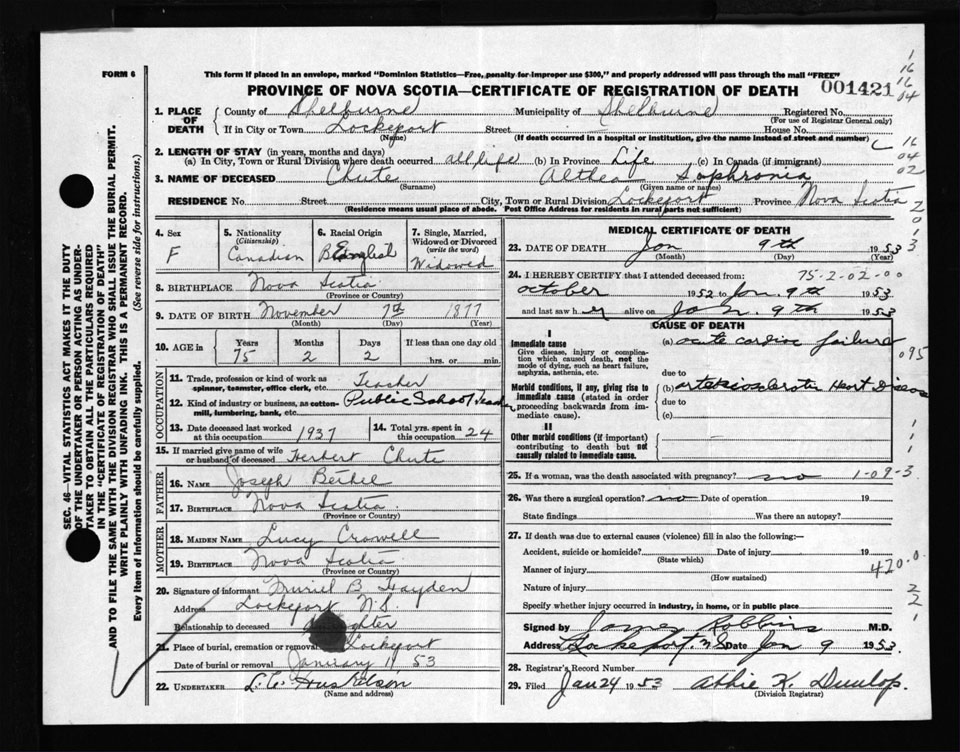 FORM 6
This form if placed in an envelope, marked "Dominion Statistics—Free, penalty for improper use $300," and properly addressed will pass through the mail "FREE"
PROVINCE OF NOVA SCOTIA—CERTIFICATE OF REGISTRATION OF DEATH 001421
1. PLACE OF DEATH County of Shelburne Municipality of Shelburne Registered No.
(For use of Registrar General only)
If in City or Town Lockeport Street — House No.
(Name) (If death occurred in a hospital or institution, give the name instead of street and number)
2. LENGTH OF STAY (in years, months and days)
(a) In City, Town or Rural Division where death occurred all life (b) In Province Life (c) In Canada (if immigrant)
3. NAME OF DECEASED Chute Althea Sophronia
(Surname) (Given name or names)
RESIDENCE No. Street City, Town or Rural Division Lockeport Province Nova Scotia
(Residence means usual place of abode. Post Office Address for residents in rural parts not sufficient)
4. Sex F
5. Nationality (Citizenship) Canadian
6. Racial Origin English
7. Single, Married, Widowed or Divorced (write the word) Widowed
8. BIRTHPLACE Nova Scotia
(Province or Country)
9. DATE OF BIRTH November 7th 1877
(Month) (Day) (Year)
10. AGE in Years Months Days If less than one day old
75 2 2 hrs. or min.
OCCUPATION
11. Trade, profession or kind of work as spinner, teamster, office clerk, etc. Teacher
12. Kind of industry or business, as cotton-mill, lumbering, bank, etc. Public School Teacher
13. Date deceased last worked at this occupation 1937
14. Total yrs. spent in this occupation 24
15. If married give name of wife or husband of deceased Herbert Chute
FATHER
16. NAME Joseph
17. BIRTHPLACE Nova Scotia
(Province or Country)
MOTHER
18. MAIDEN NAME Lucy Crowell
19. BIRTHPLACE Nova Scotia
(Province or Country)
20. Signature of informant Muriel B. Hayden
Address Lockeport N.S.
Relationship to deceased daughter
21. Place of burial, cremation or removal Lockeport
Date of burial or removal January 11 53
22. UNDERTAKER L. C. Huskilson
(Name and address)
MEDICAL CERTIFICATE OF DEATH
23. DATE OF DEATH Jan 9th 1953
(Month) (Day) (Year)
24. I HEREBY CERTIFY that I attended deceased from: 75-2-02-00
october 1952 to Jan. 9th 1953
and last saw her alive on Jan. 9th 1953
CAUSE OF DEATH
I
Immediate cause
Give disease, injury or complication which caused death, not the mode of dying, such as heart failure, asphyxia, asthenia, etc.
(a) acute cardiac failure 095
due to
Morbid conditions, if any, giving rise to immediate cause (stated in order proceeding backwards from immediate cause).
(b) arteriosclerotic Heart Disease
due to
(c)
II
Other morbid conditions (if important) contributing to death but not causally related to immediate cause.
25. If a woman, was the death associated with pregnancy? no 1-09-3
26. Was there a surgical operation? no Date of operation 19
State findings Was there an autopsy?
27. If death was due to external causes (violence) fill in also the following:—
Accident, suicide or homicide? Date of injury 19
(State which)
Manner of injury 420.0
(How sustained)
Nature of injury
Specify whether injury occurred in industry, in home, or in public place
Signed by James Robbins M.D.
Address Lockeport. N S Date Jan 9 1953.
28. Registrar's Record Number
29. Filed Jan 24 1953 Abbie K. Dunlop.
(Division Registrar)
SEC. 46—VITAL STATISTICS ACT MAKES IT THE DUTY
OF THE UNDERTAKER OR PERSON ACTING AS UNDERTAKER TO OBTAIN ALL THE PARTICULARS REQUIRED
IN THE "CERTIFICATE OF REGISTRATION OF DEATH"
AND TO FILE THE SAME WITH THE DIVISION REGISTRAR WHO SHALL ISSUE THE BURIAL PERMIT.
WRITE PLAINLY WITH UNFADING INK. THIS IS A PERMANENT RECORD.
Every item of information should be carefully supplied. (See reverse side for instructions.)